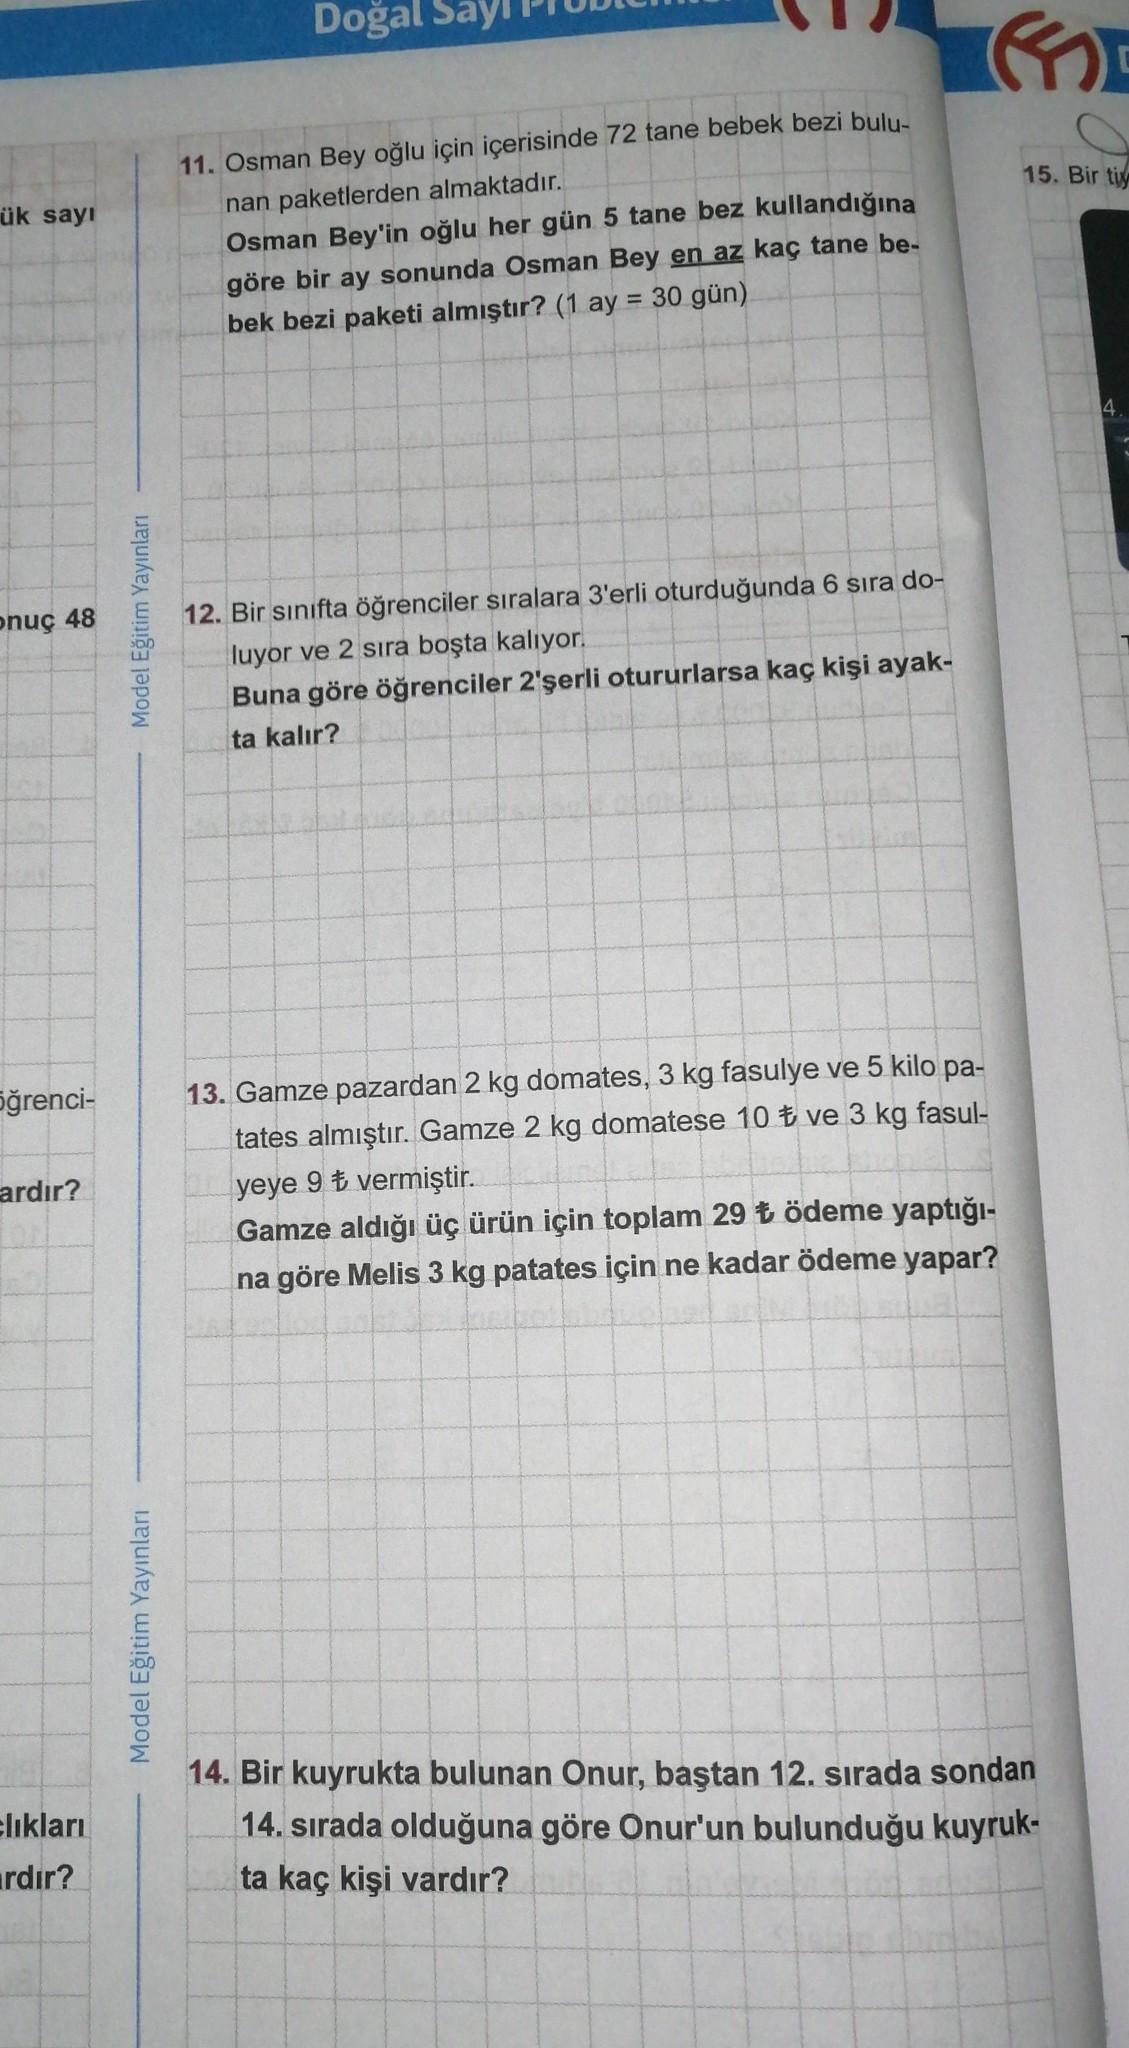 Doğal Sayı
ük sayı
onuç 48
öğrenci-
ardır?
rdır?
Model Eğitim Yayınları
Model Eğitim Yayınları
11. Osman Bey oğlu için içerisinde 72 tane bebek bezi bulu-
nan paketlerden almaktadır.
Osman Bey'in oğlu her gün 5 tane bez kullandığına
göre bir ay sonunda Osman Bey en az kaç tane be-
bek bezi paketi almıştır? (1 ay = 30 gün)
12. Bir sınıfta öğrenciler sıralara 3'erli oturduğunda 6 sıra do-
luyor ve 2 sıra boşta kalıyor.
Buna göre öğrenciler 2'şerli otururlarsa kaç kişi ayak-
ta kalır?
13. Gamze pazardan 2 kg domates, 3 kg fasulye ve 5 kilo pa-
tates almıştır. Gamze 2 kg domatese 10 ₺ ve 3 kg fasul-
yeye 9 ₺ vermiştir.
Gamze aldığı üç ürün için toplam 29 ₺ ödeme yaptığı-
na göre Melis 3 kg patates için ne kadar ödeme yapar?
14. Bir kuyrukta bulunan Onur, baştan 12. sırada sondan
14. sırada olduğuna göre Onur'un bulunduğu kuyruk-
ta kaç kişi vardır?
15. Bir
4.